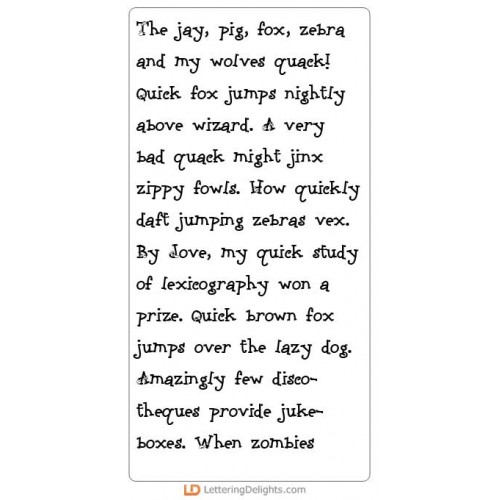 The jay, pig, fox, zebra
and my wolves quack!
Quick fox jumps nightly
above wizard. A very
bad quack might jinx
zippy fowls. How quickly
daft jumping zebras vex.
By Jove, my quick study
of lexicography won a
prize. Quick brown fox
jumps over the lazy dog.
Amazingly few disco-
theques provide juke-
boxes. When zombies
LD LetteringDelights.com